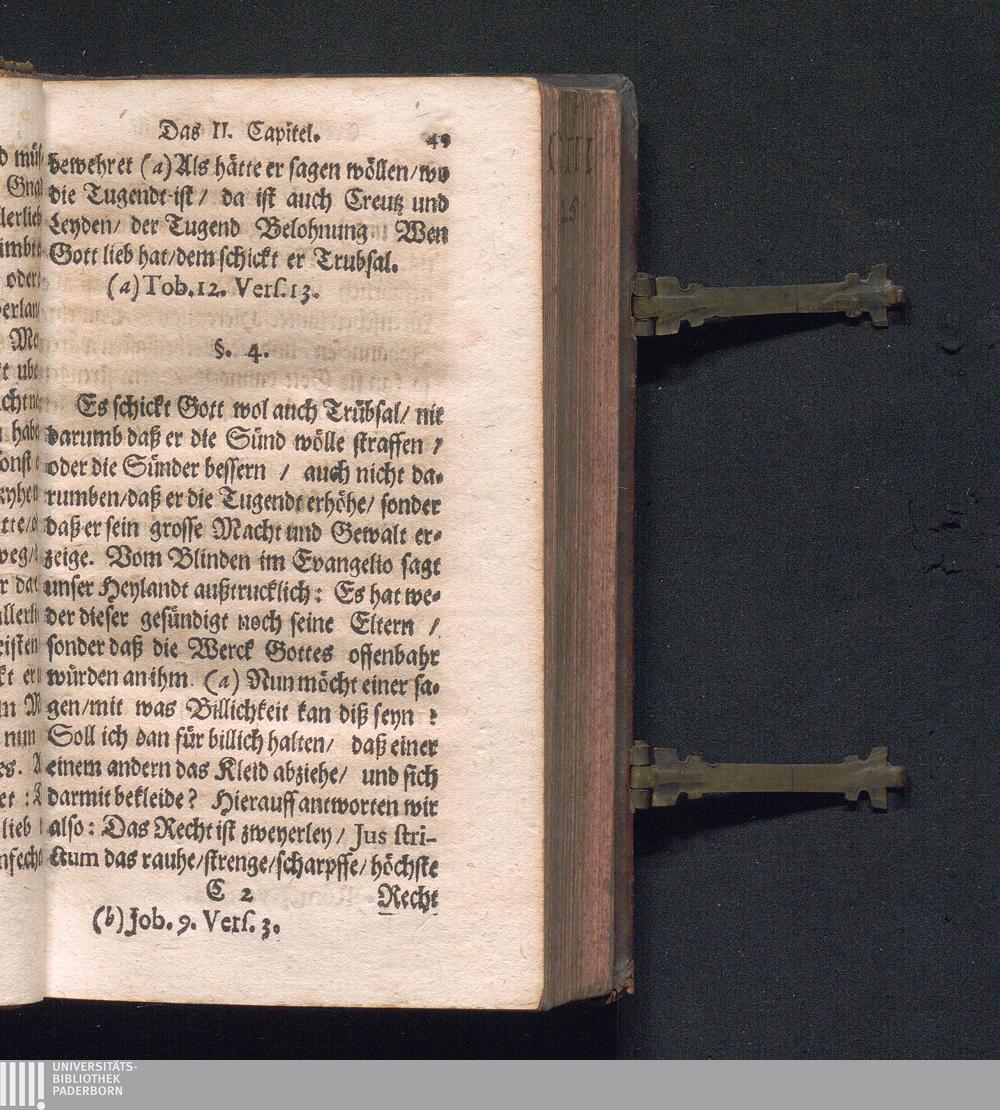 Das II. Capitel. 49
bewehret (a) Als hätte er sagen wöllen/wo
die Tugendt ist / da ist auch Creutz und
Leyden/ der Tugend Belohnung Wen
Gott lieb hat/dem schickt er Trubsal.
(a) Tob. 12. Vers. 13.
§. 4.
Es schickt Gott wol auch Trübsal/ nit
darumb daß er die Sünd wölle straffen /
oder die Sünder bessern / auch nicht da-
rumben/daß er die Tugendt erhöhe/ sonder
daß er sein grosse Macht und Gewalt er-
zeige. Vom Blinden im Evangelio sagt
unser Heylandt außtrucklich: Es hat we-
der dieser gesündigt noch seine Eltern /
sonder daß die Werck Gottes offenbahr
würden an ihm. (a) Nun möcht einer sa-
gen/mit was Billichkeit kan diß seyn ?
Soll ich dan für billich halten/ daß einer
einem andern das Kleid abziehe/ und sich
darmit bekleide? Hierauff antworten wir
also: Das Recht ist zweyerley/ Jus stri-
ctum das rauhe/strenge/scharpffe/höchste
C 2 Recht
(b) Job. 9. Vers. 3.
UNIVERSITÄTS-
BIBLIOTHEK
PADERBORN